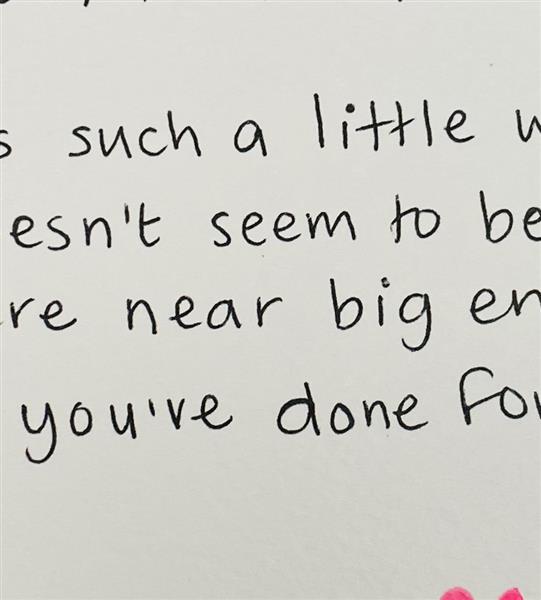 s such a little w
esn't seem to be
re near big en
you've done for